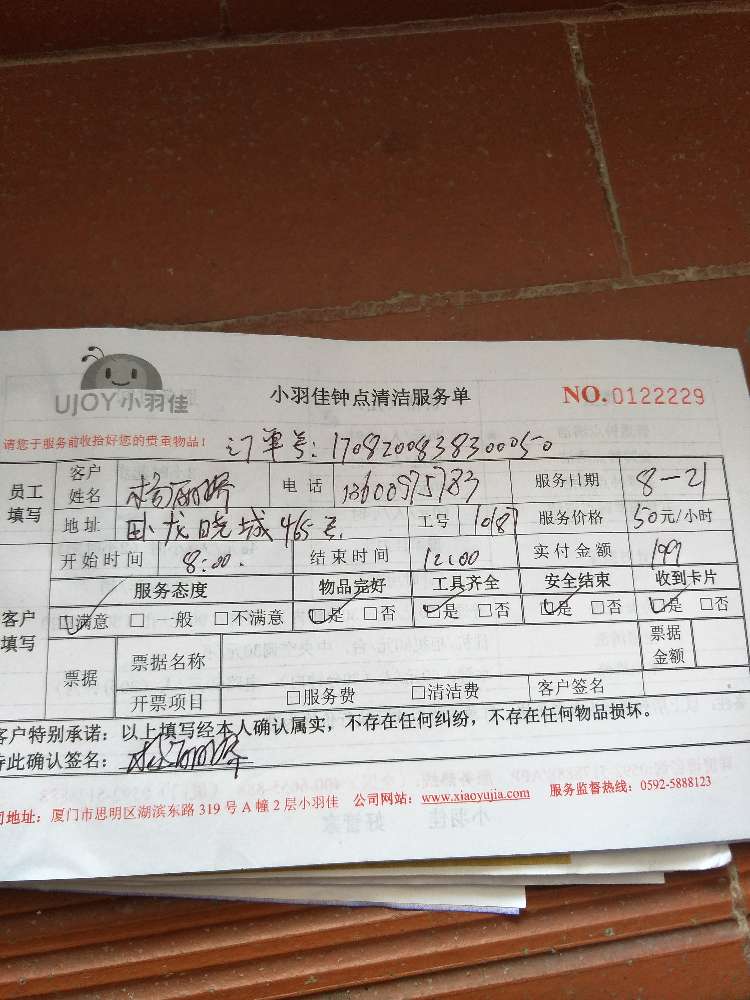 UJOY小羽佳
小羽佳钟点清洁服务单
NO.0122229
请您于服务前收拾好您的贵重物品!
订单号:1708200838300050
员工填写 客户姓名 杨丽 电话 服务日期 8-21
地址 卧龙晓城465号 工号 1087 服务价格 50元/小时
开始时间 8:00. 结束时间 12:00 实付金额 199
客户填写 服务态度 物品完好 工具齐全 安全结束 收到卡片
☑满意 □一般 □不满意 ☑是 □否 ☑是 □否 ☑是 □否 ☑是 □否
票据 票据名称 票据金额
开票项目 □服务费 □清洁费 客户签名
客户特别承诺:以上填写经本人确认属实,不存在任何纠纷,不存在任何物品损坏。
特此确认签名:
司地址:厦门市思明区湖滨东路 319 号 A 幢 2 层小羽佳 公司网站:www.xiaoyujia.com 服务监督热线:0592-5888123